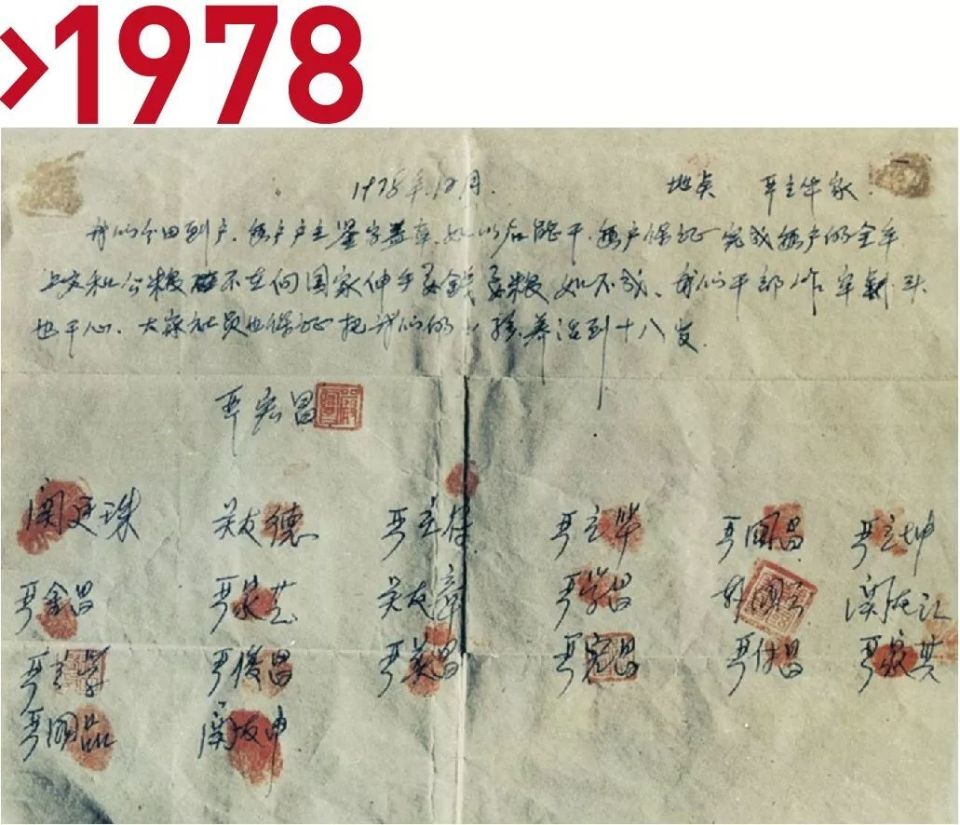 >1978
1978年.12月. 地点 严立华家
我们分田到户.每户户主签字盖章.如以后能干.每户保证完成每户的全年
上交和公粮不在向国家伸手要钱要粮如不成、我们干部作牢刹头
也干心、大家社员也保证把我们的小孩养活到十八岁.
严宏昌
关廷珠 关友德 严立符 严立华 严国昌 严立坤
严金昌 严家芝 关友章 严学昌 韩国云 关友江
严立学 严俊昌 严美昌 严宏昌 严付昌 严家其
严国品 关友申